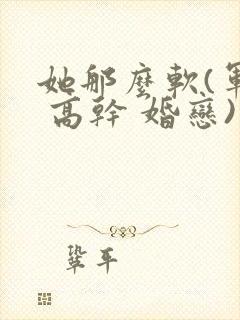 她那麼軟(軍
高幹 婚戀)
鞏平